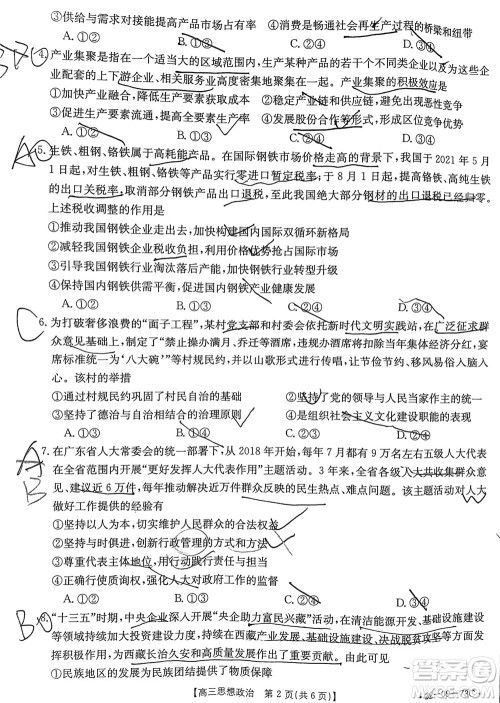 ③供给与需求对接能提高产品市场占有率 ④消费是畅通社会再生产过程的桥梁和纽带
A.①② B.①③ C.②④ D.③④
4.产业集聚是指在一个适当大的区域范围内,生产某种产品的若干个同类企业、为这些企业配套的上下游企业、相关服务业高度密集地聚集在一起。产业集聚的积极效应是
①加快产业融合,降低生产要素获取成本 ②稳定产业链和供应链,避免出现恶性竞争
③促进生产要素流通,提高全要素生产率 ④发展股份合作等形式,形成规模竞争优势
A.①② B.①③ C.②④ D.③④
5.生铁、粗钢、铬铁属于高耗能产品。在国际钢铁市场价格走高的背景下,我国于 2021 年 5 月
1 日起,对生铁、粗钢、铬铁等产品实行零进口暂定税率;于 8 月 1 日起,提高铬铁、高纯生铁
的出口关税率,取消部分钢铁产品出口退税,至此我国绝大部分钢材的出口退税已经归零。
上述税收调整的作用是
①推动我国钢铁企业走出去,加快构建国内国际双循环新格局
②减轻我国钢铁企业税收负担,利用价格优势抢占国际市场
③引导我国钢铁行业淘汰落后产能,加快钢铁行业转型升级
④保障国内钢铁供应,促进国内钢铁行业健康发展
A.①② B.①③ C.②④ D.③④
6.为打破奢侈浪费的“面子工程”,某村党支部和村委会依托新时代文明实践站,在广泛征求群
众意见基础上,制定“禁止操办满月酒、乔迁酒等酒席,违规操办酒席将取消评优资格,红白喜
宴席标准统一为‘八大碗’”等村规民约,并以山歌形式进行传唱,让节俭节约、移风易俗入脑入
心。该村的举措
①通过村规民约巩固了村民自治的基础 ②坚持了党的领导与人民当家作主有机统一
③坚持了德治与自治相结合的治理原则 ④是组织社会主义文化建设职能的表现
A.①② B.①④ C.②③ D.③④
7.在广东省人大常委会的统一部署下,从 2018 年开始,每年 7 月都有 9 万名左右五级人大代表
在全省范围内开展“更好发挥人大代表作用”主题活动。3 年来,全省各级人大共收集群众意
见、建议近 6 万件,每年推动解决近万件群众反映的民生热点、难点问题。该主题活动对人大
做好工作提供的经验有
①坚持以人为本,切实维护人民群众的合法权益
②坚持与时俱进,创新行政管理的方式和方法
③尊重代表主体地位,用行动践行责任与担当
④坚持依法行政,强化人大对政府工作的监督
A.①③ B.①④ C.②③ D.②④
8.“十三五”时期,中央企业深入开展“央企助力富民兴藏”活动,在清洁能源开发、基础设施建设
等领域持续加大投资建设力度,在西藏产业发展、基础设施建设、决战脱贫攻坚等方面成效显著,
为西藏长治久安和高质量发展作出了重要贡献。这
①民族地区的发展为民族团结提供了物质保障
【高三思想政治 第 2 页(共 6 页)】